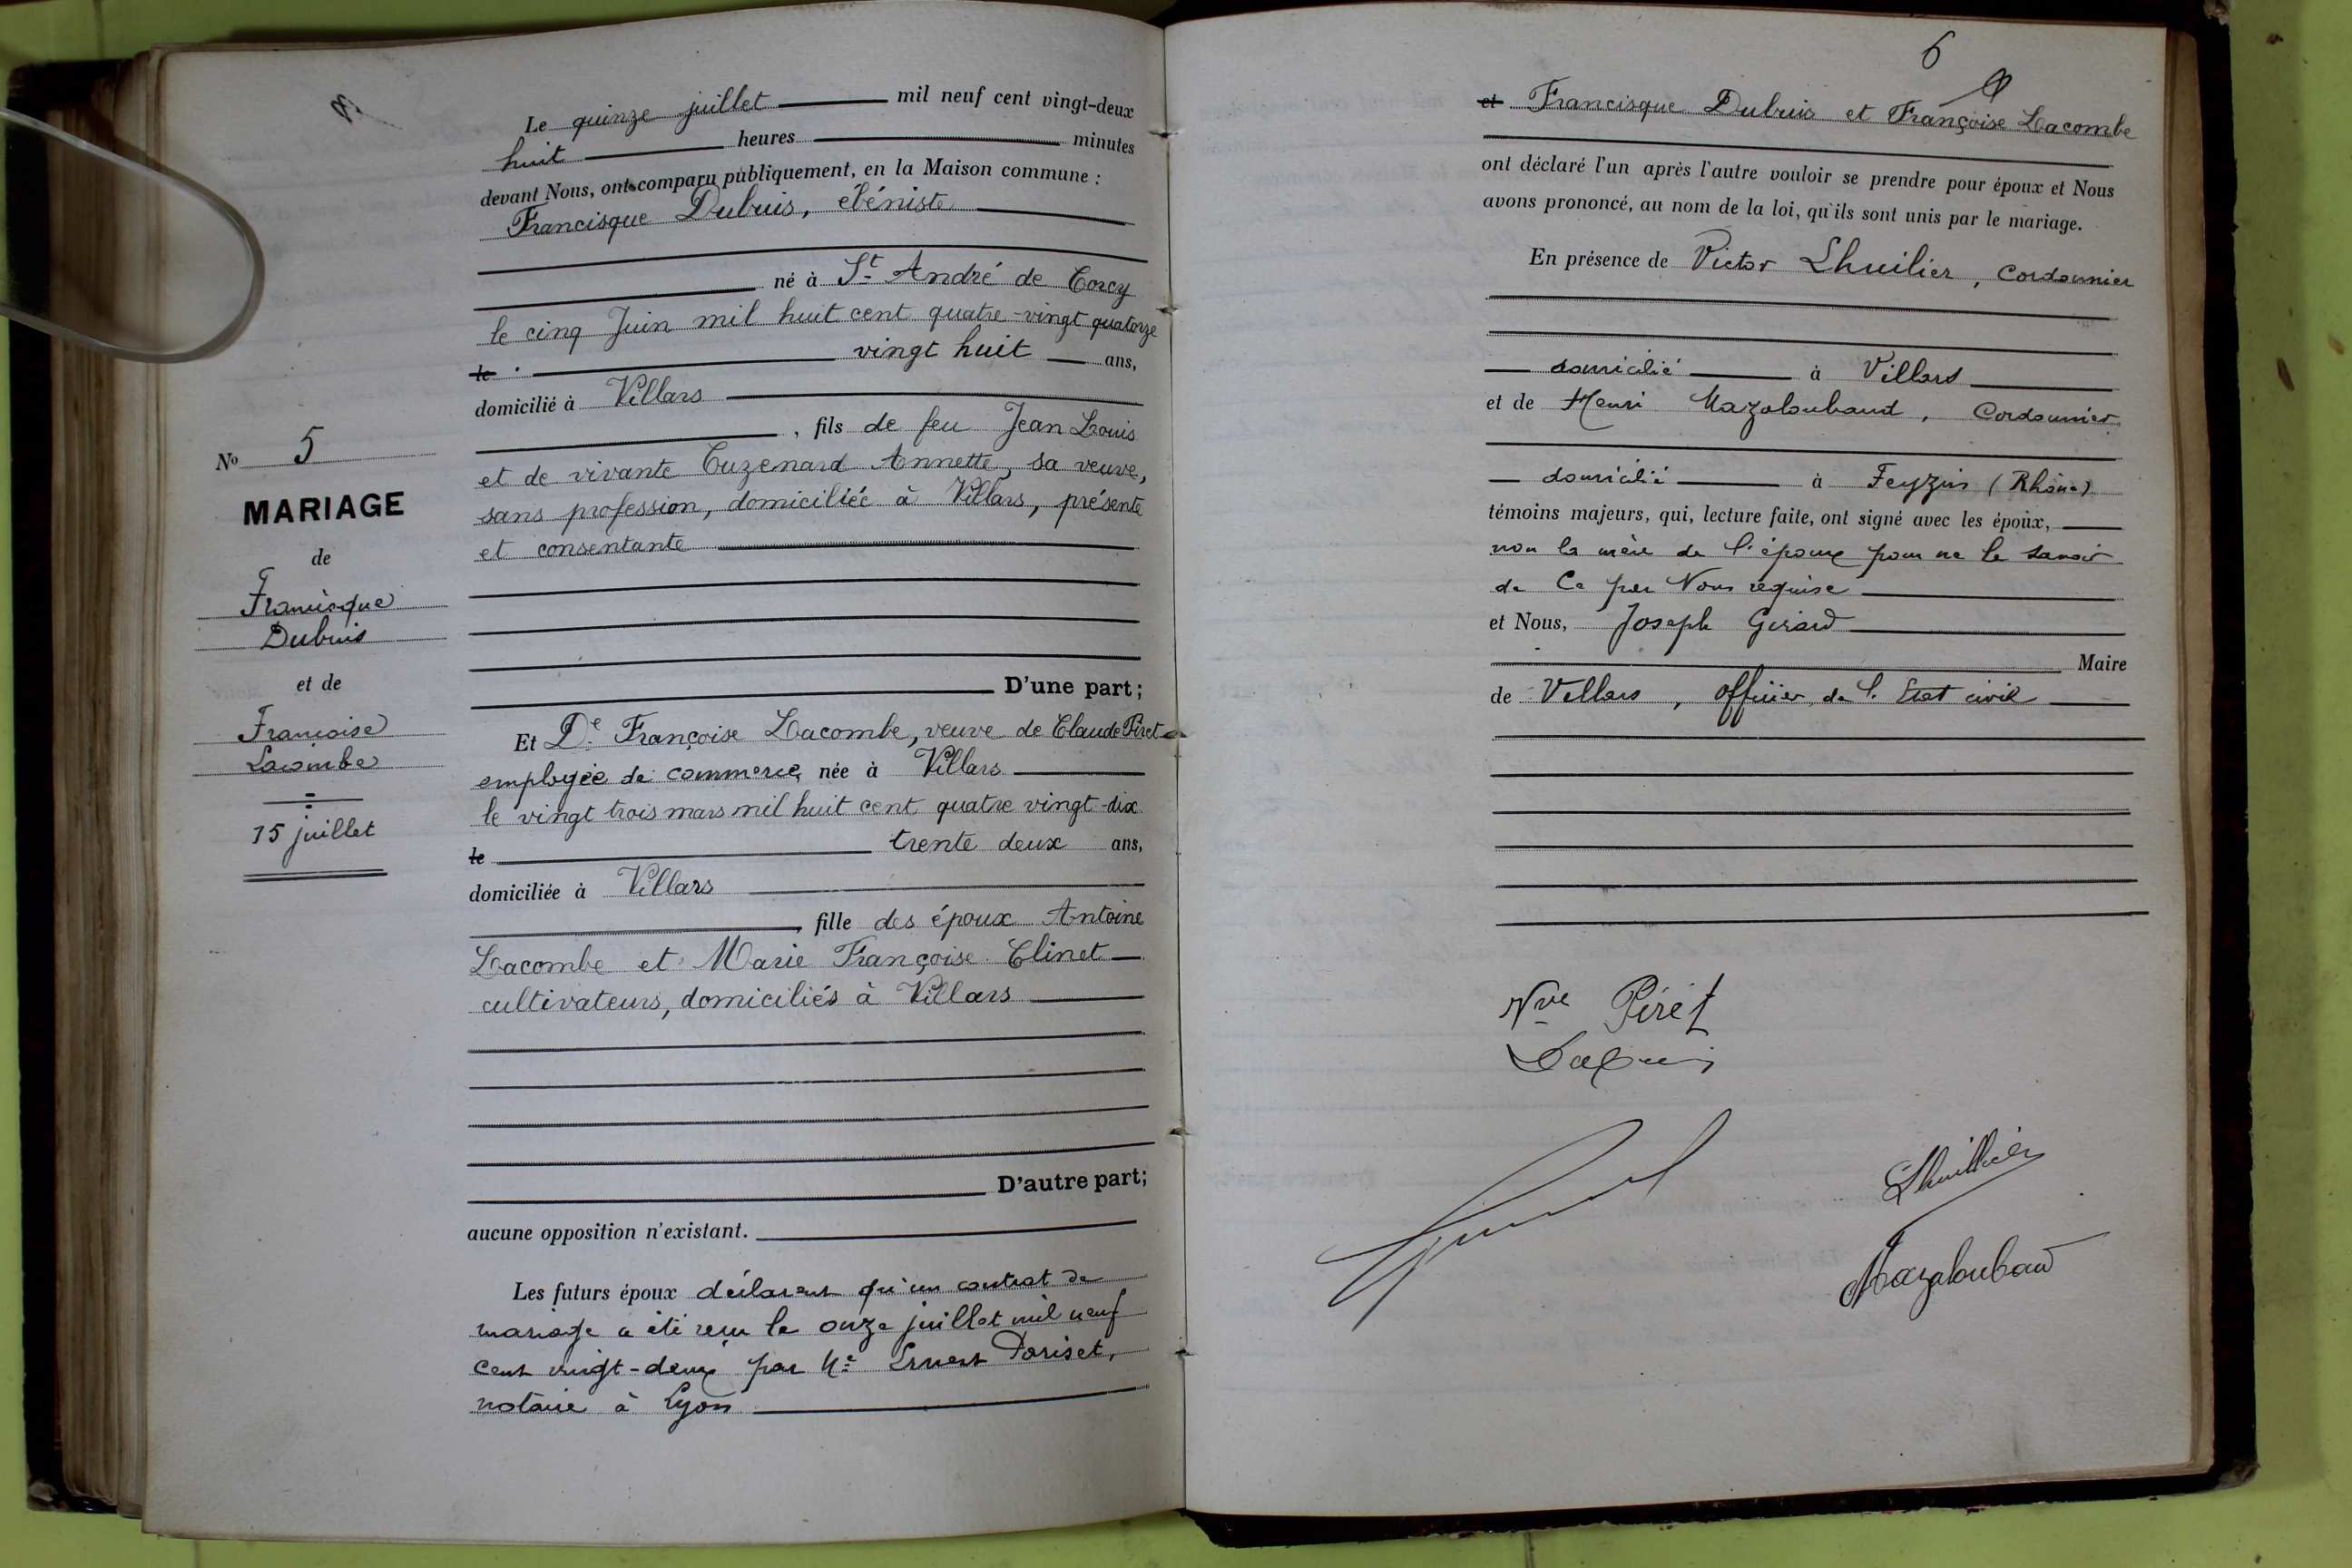 Le quinze juillet mil neuf cent vingt-deux
huit heures minutes
devant Nous, ont comparu publiquement, en la Maison commune :
Francisque Dubuis, ébéniste
né à St André de Corcy
le cinq Juin mil huit cent quatre-vingt quatorze
le vingt huit ans,
domicilié à Villars
, fils de feu Jean Louis
et de vivante Cuzenard Annette, sa veuve,
sans profession, domiciliée à Villars, présente
et consentante
D'une part;
Et De Françoise Lacombe, veuve de Claude Piret
employée de commerce, née à Villars
le vingt trois mars mil huit cent quatre vingt-dix
le trente deux ans,
domiciliée à Villars
, fille des époux Antoine
Lacombe et Marie Françoise Clinet
cultivateurs, domiciliés à Villars
D'autre part;
aucune opposition n'existant.
Les futurs époux déclarent qu'un contrat de
mariage a été reçu le onze juillet mil neuf
cent vingt-deux par Me Ernest Pariset,
notaire à Lyon
No 5
MARIAGE
de
Francisque
Dubuis
et de
Françoise
Lacombe
15 juillet
6
et Francisque Dubuis et Françoise Lacombe
ont déclaré l'un après l'autre vouloir se prendre pour époux et Nous
avons prononcé, au nom de la loi, qu'ils sont unis par le mariage.
En présence de Victor Lhuilier, Cordonnier
domicilié à Villars
et de Henri Mazaloubaud, Cordonnier
domicilié à Feyzin (Rhône)
témoins majeurs, qui, lecture faite, ont signé avec les époux,
non la mère de l'époux pour ne le savoir
de Ce par Nous requise
et Nous, Joseph Girard
Maire
de Villars, officier de l'Etat civil
Vve Piret
Dubuis
Lhuillier
Mazaloubaud